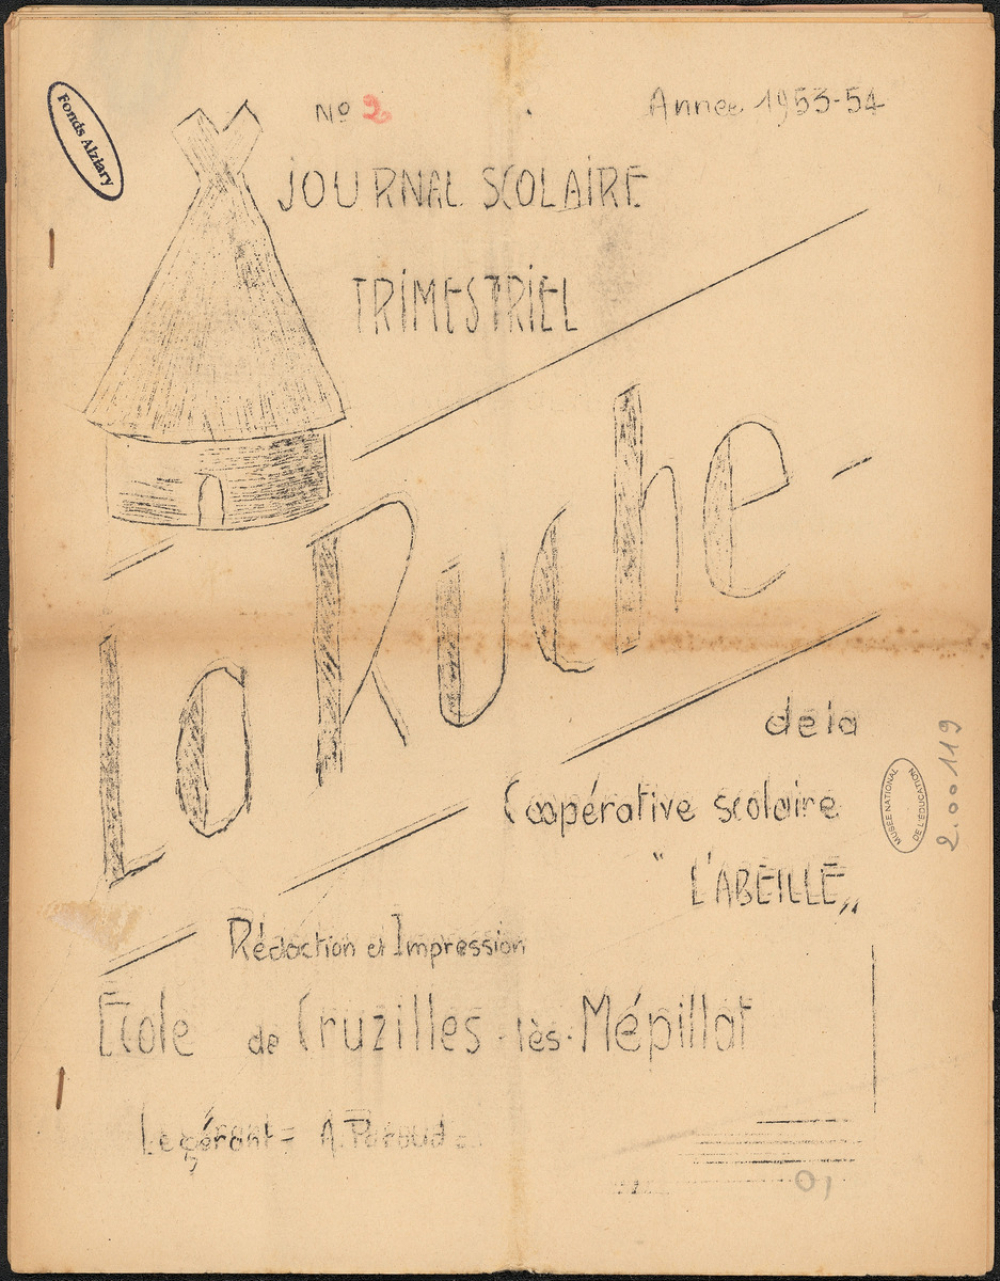 Fonds Alziary
Nº 2
Année 1953-54
JOURNAL SCOLAIRE
TRIMESTRIEL
La Ruche
de la
Coopérative scolaire
" L'ABEILLE „
MUSÉE NATIONAL
DE L'ÉDUCATION
2.00119
Rédaction et Impression
Ecole de Cruzilles-lès-Mépillat
Le gérant = A.